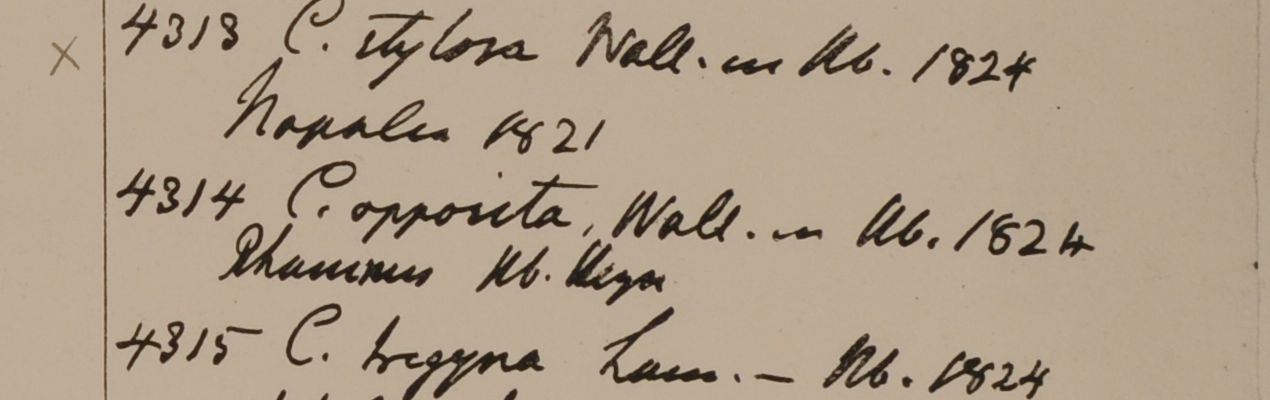 4313 C. stylosa Wall. in Hb. 1824
Napalia 1821
4314 C. opposita, Wall. in Hb. 1824
Rhamnus Hb. Heyn
4315 C. tregyna Lam. – Hb. 1824